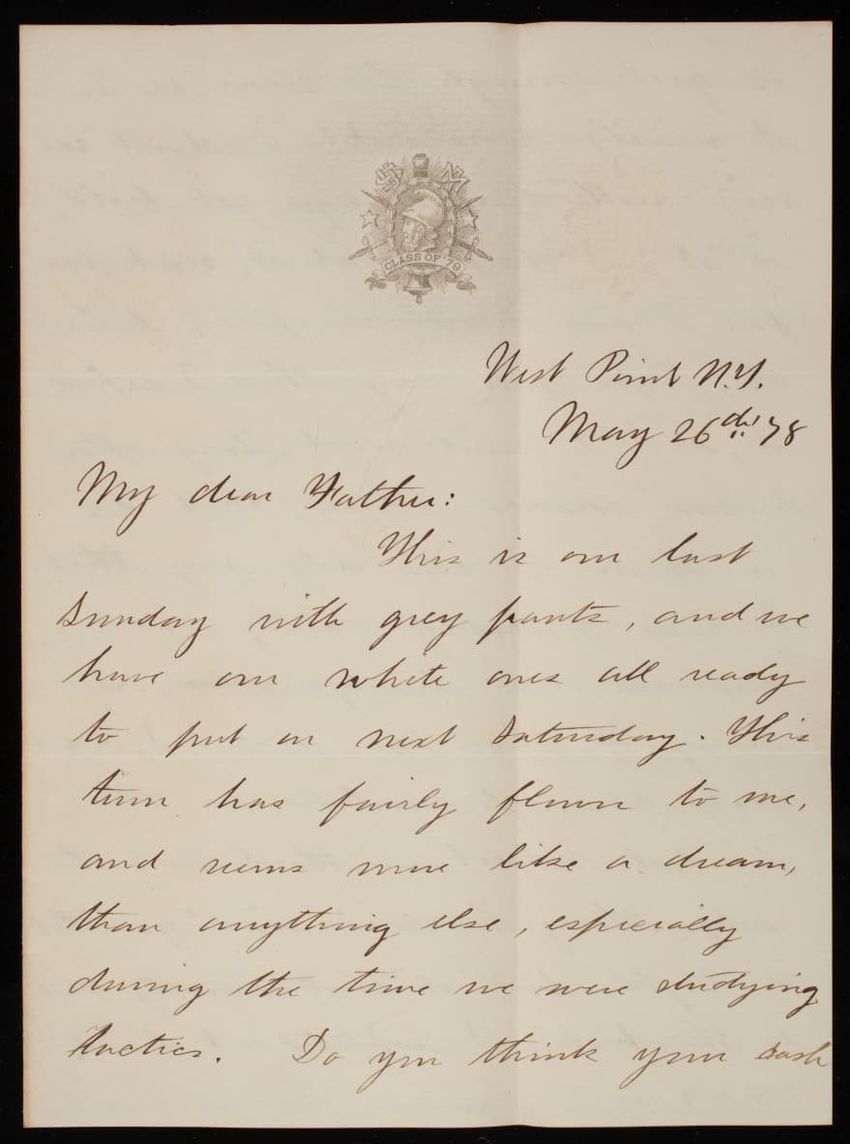 US MA
CLASS OF '79
West Point N.Y.
May 26th '78
My dear Father:
This is our last
Sunday with grey pants, and we
have our white ones all ready
to put on next Saturday. This
term has fairly flown to me,
and seems more like a dream,
than anything else, especially
during the time we were studying
tactics. Do you think your sash